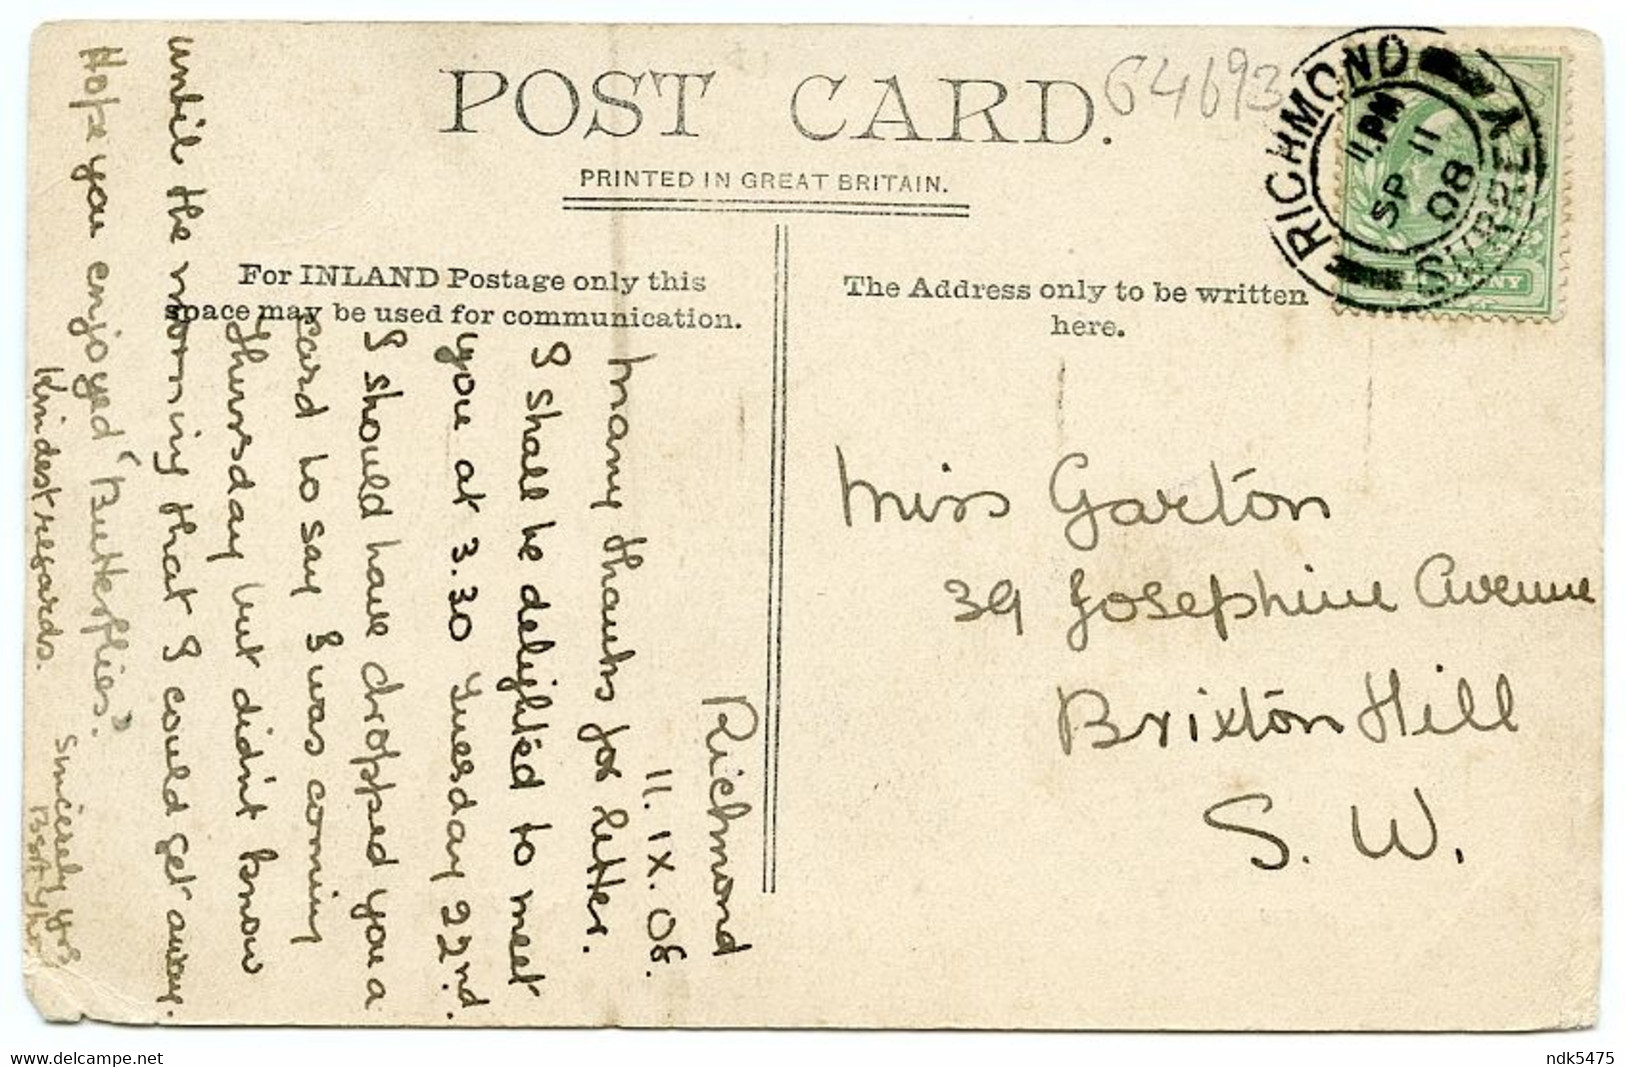 POST CARD.
64693
PRINTED IN GREAT BRITAIN.
RICHMOND
SURREY
11.PM
SP 11
08
For INLAND Postage only this
space may be used for communication.
The Address only to be written
here.
Miss Garton
39 Josephine Avenue
Brixton Hill
S. W.
Richmond
11. IX. 08.
Many thanks for letter.
I shall be delighted to meet
you at 3.30 Tuesday 22nd.
I should have dropped you a
card to say I was coming
Thursday but didn't know
until the morning that I could get away.
Hope you enjoyed "Butterflies."
Kindest regards.
Sincerely yrs
www.delcampe.net
ndk5475